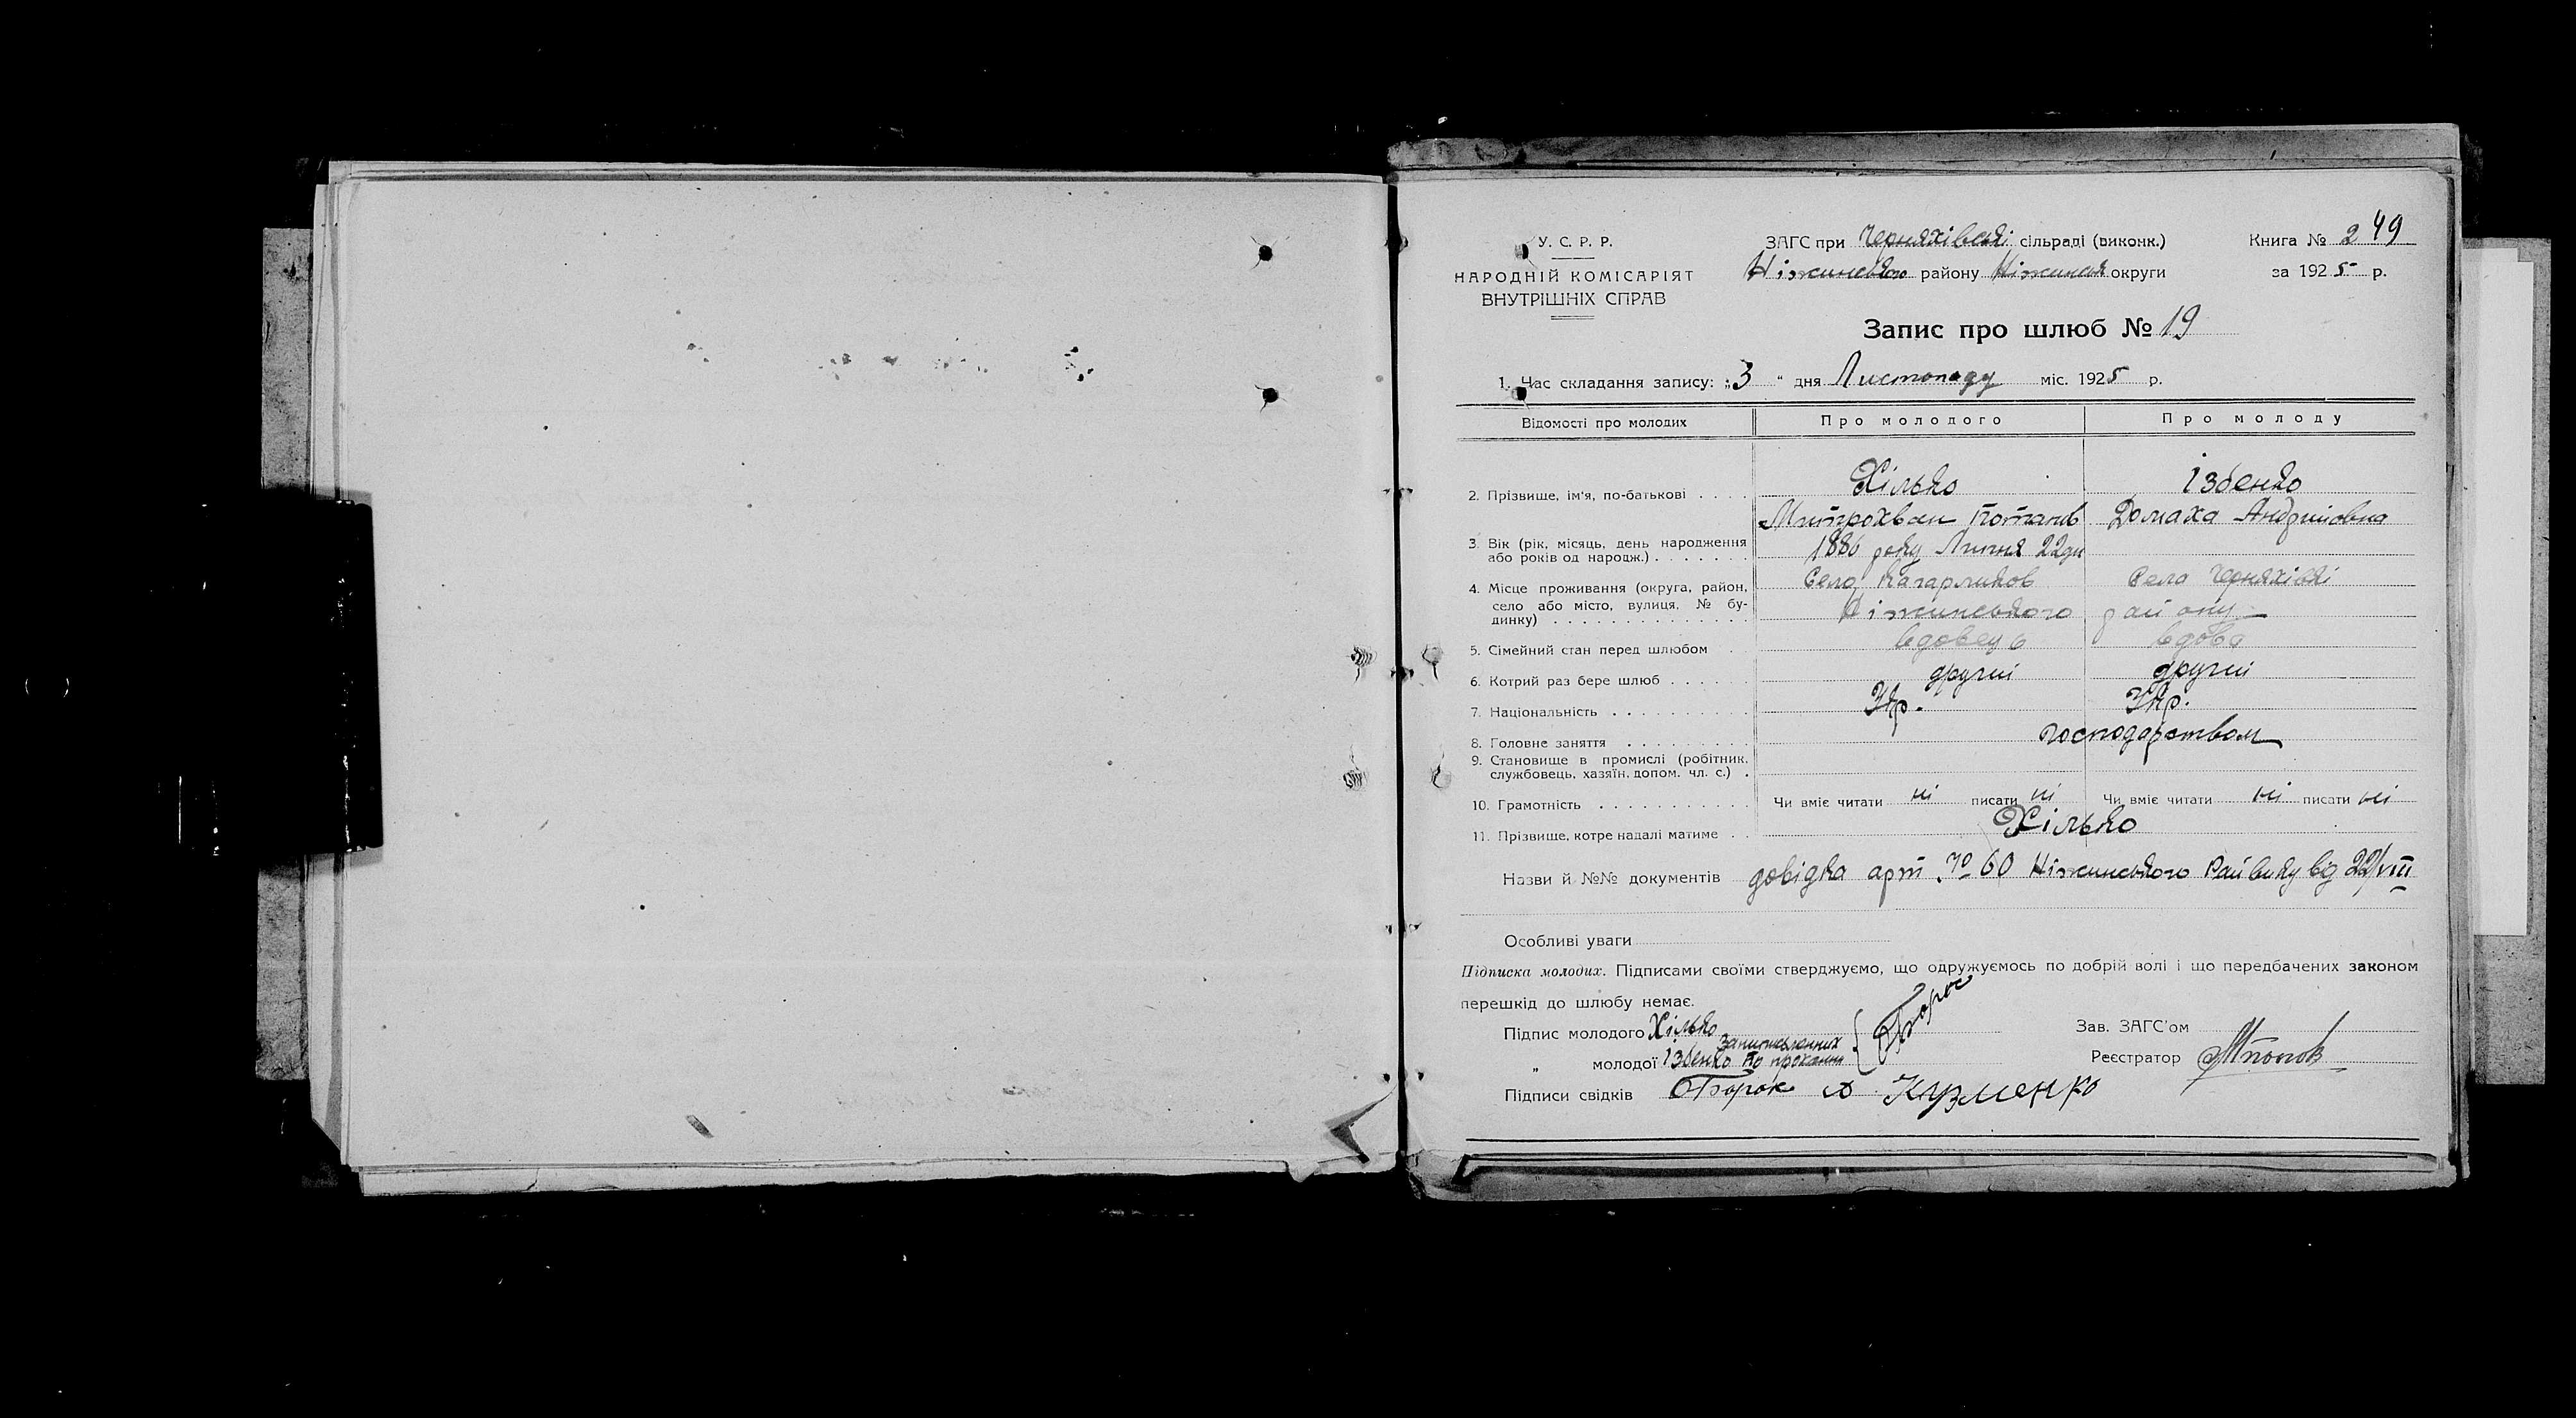 У. С. Р. Р.
НАРОДНІЙ КОМІСАРІЯТ
ВНУТРІШНІХ СПРАВ
ЗАГС при Черняхівській сільраді (виконк.)
Ніжинського району Ніжинської округи
Книга № 2 49
за 1925 р.
Запис про шлюб № 19
1. Час складання запису: „3“ дня Листопаду міс. 1925 р.
Відомості про молодих Про молодого Про молоду
2. Прізвище, ім'я, по-батькові . . . . Хілько Ізбенко
Митрохван Домаха Андриіовна
3. Вік (рік, місяць, день народження
або років од народж.) . . . . . . . 1886 року Липня 22дн
4. Місце проживання (округа, район,
село або місто, вулиця, № бу-
динку) . . . . . . . . . . . . . .
Село Кагарликов Село Черняхівкі
Ніжинського району
5. Сімейний стан перед шлюбом . вдовець вдова
6. Котрий раз бере шлюб . . . . . . другий другий
7. Національність . . . . . . . . . . Укр. Укр.
8. Головне заняття . . . . . . . . . господарством
9. Становище в промислі (робітник,
службовець, хазяїн, допом. чл. с.) .
10. Грамотність . . . . . . . . . . . Чи вміє читати ні писати ні Чи вміє читати ні писати ні
11. Прізвище, котре надалі матиме . . Хілько
Назви й №№ документів довідка № 60 Ніжинського Райвику від 22/VIII
Особливі уваги
Підписка молодих. Підписами своїми стверджуємо, що одружуємось по добрій волі і що передбачених законом
перешкід до шлюбу немає.
Підпис молодого Хілько
„ молодої Ізбенко по прохання
Зав. ЗАГС'ом
Реєстратор
Підписи свідків Кузменко